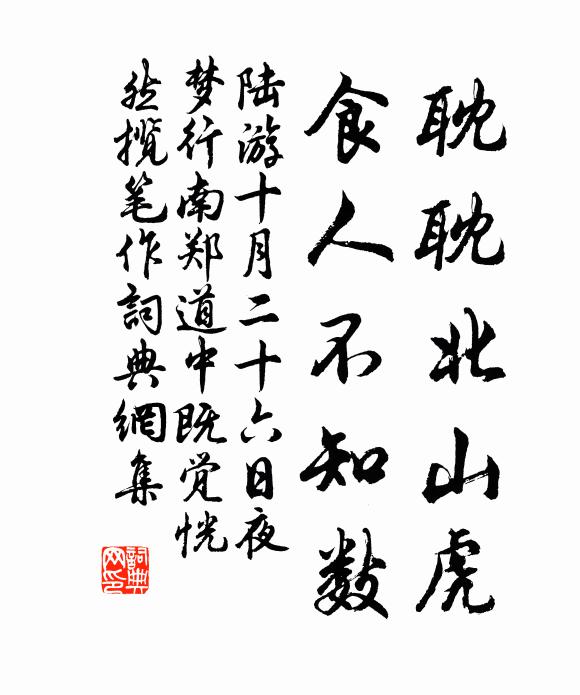 耽耽北山虎
食人不知數
陆游十月二十六日夜
梦行南郑道中既觉恍
然揽笔作詞典網集
詞典网印